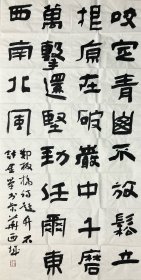 咬定青山不放鬆立
根原在破巖中千磨
萬擊還堅勁任爾東
西南北風
鄭板橋詩題竹石